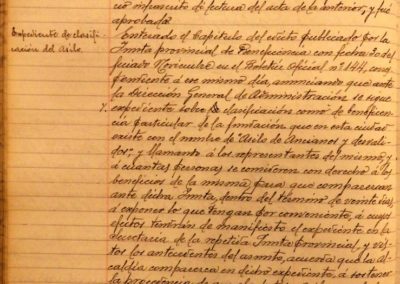 cio infrascrito de lectura del acta de la anterior, y fué
aprobada.
Expediente de clasifi-
cación del Asilo.
Enterado el Capítulo del edicto publicado por la
Junta provincial de Beneficencia con fecha 20 de
Noviembre en el Boletín Oficial nº 144, corres
pondiente á ese mismo día, anunciando que ante
la Dirección General de Administración se sigue
expediente sobre clasificación como de beneficen
cia particular de la fundación que en esta ciudad
existe con el nombre de "Asilo de Ancianos y desvali-
dos", y llamando á los representantes del mismo y
á cuantas personas se consideren con derecho á los
beneficios de la misma para que comparezcan
ante dicha Junta, dentro del término de veinte días
á exponer lo que tengan por conveniente, á cuyos
efectos tendrán de manifiesto el expediente en la
Secretaría de la repetida Junta provincial, y vis-
tos los antecedentes del asunto, acuerda que la al-
caldía comparezca en dicho expediente, á sostener
la